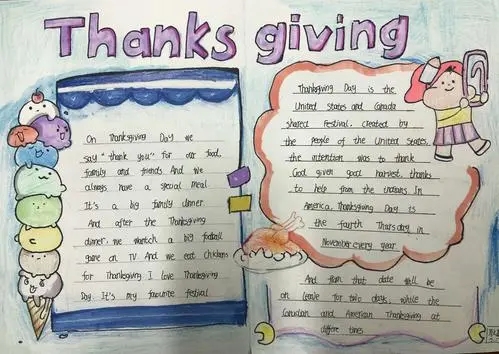 Thanks giving
On Thanksgiving Day we
say "thank you" for our food,
family and friends And we
always have a special meal.
It's a big family dinner.
And after the Thanksgiving
dinner, we watch a big football
game on TV And we eat chickens
for Thanksgiving I love Thanksgiving
Day. It's my favourite festival
Thanksgiving Day is the
United States and Canada
shared Festival, created by
the people of the United States,
the intention was to thank
God given good harvest, thanks
to help from the Indians. In
America, Thanksgiving Day is
the fourth Thursday in
November every year.
And from that date will be
on leave for two days, while the
Canadian and American Thanksgiving at
different times